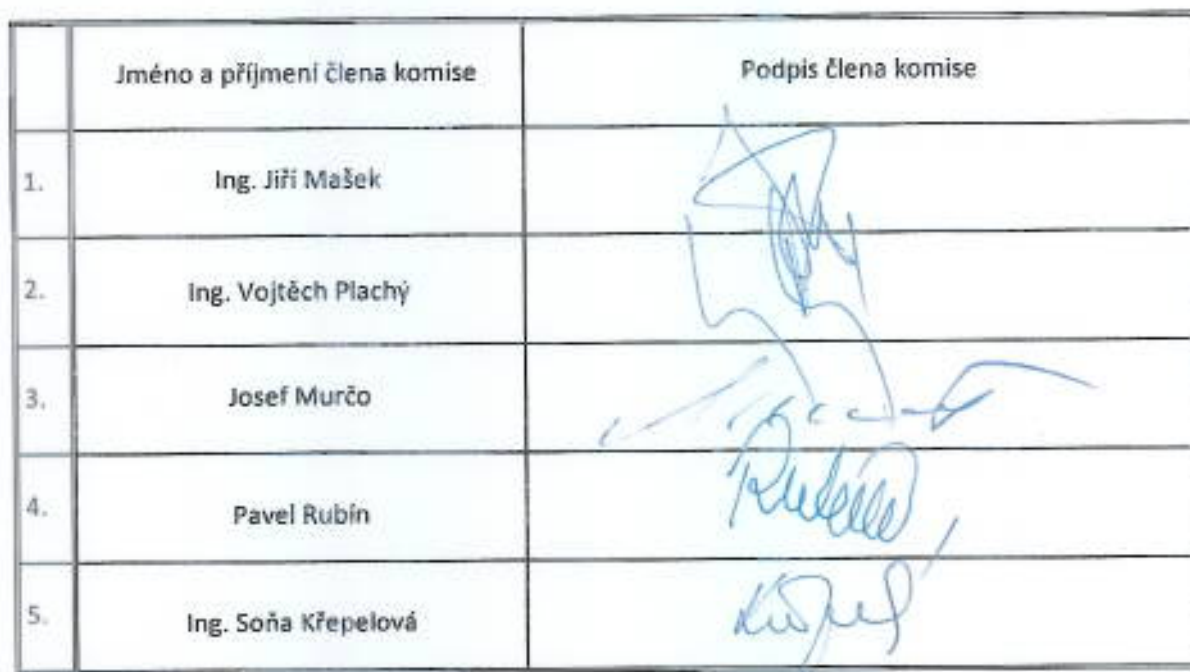 Jméno a příjmení člena komise
Podpis člena komise
1. Ing. Jiří Mašek
2. Ing. Vojtěch Plachý
3. Josef Murčo
4. Pavel Rubín
Rubín
5. Ing. Soňa Křepelová